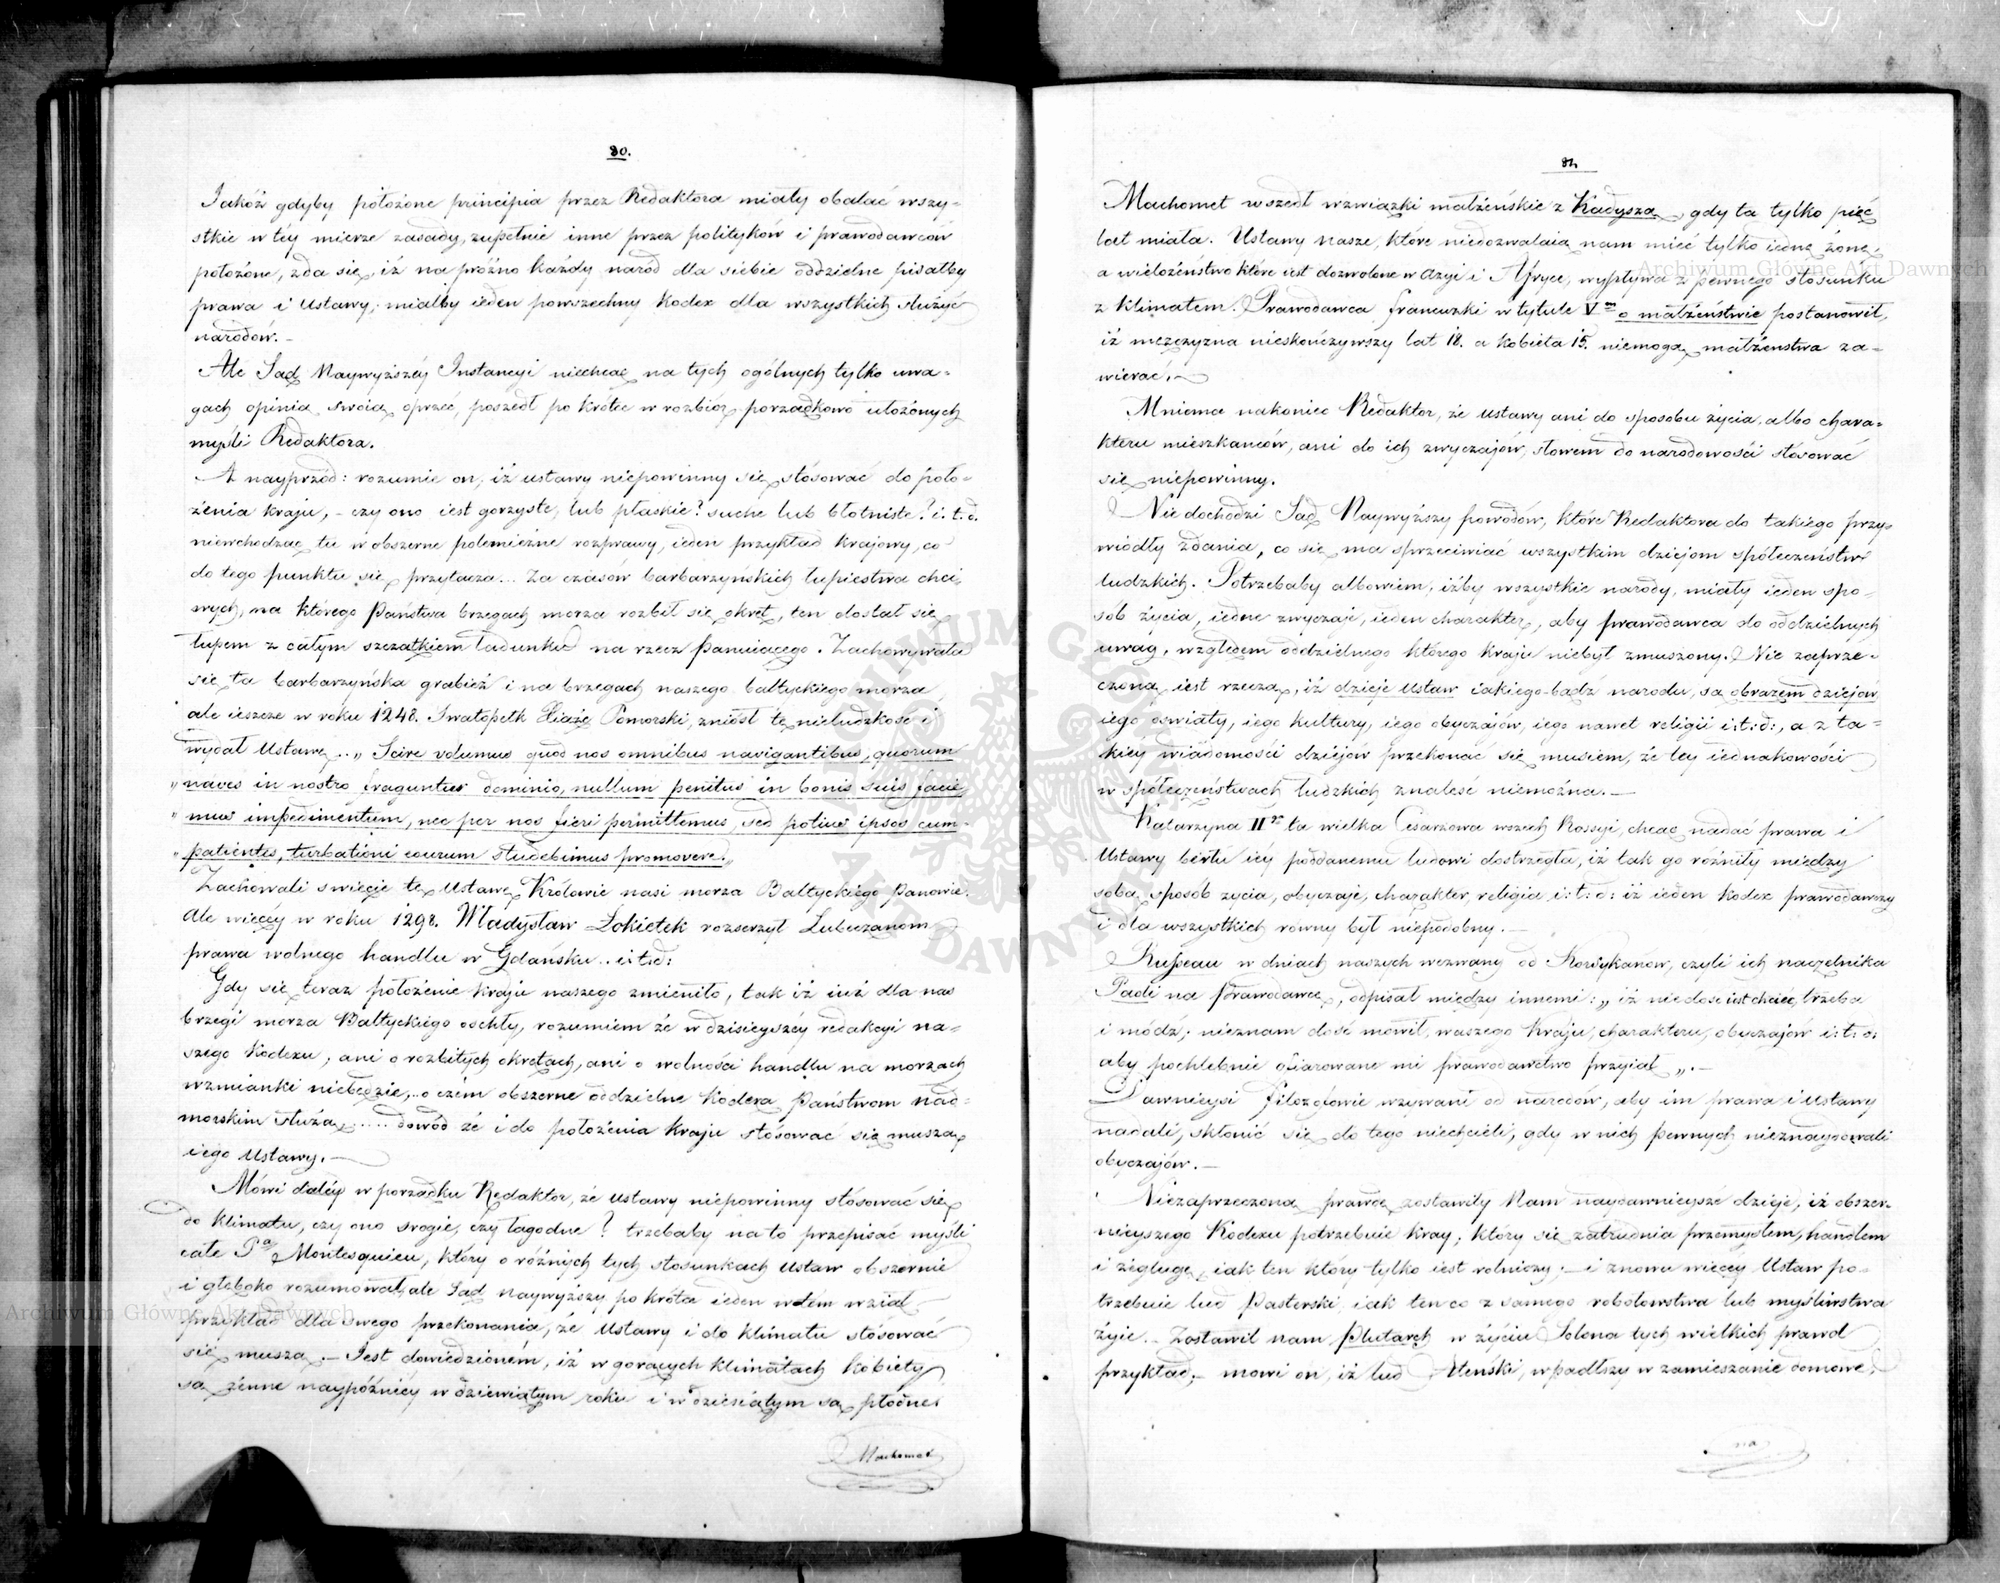 80.
Jakóż gdyby położone principia przez Redaktora miały obalać wszy-
stkie w téy mierze zasady, zupełnie inne przez polityków i prawodawców
położone, zda się, iż na próżno każdy naród dla siebie oddzielne pisałby
prawa i Ustawy; miałby ieden powszechny Kodex dla wszystkich służyć
narodów. –
Ale Sąd Naywyższéy Instancyi niechcąc na tych ogólnych tylko uwa-
gach opinią swoią oprzeć, poszedł po krótce w rozbiór porządkowo ułożonych
myśli Redaktora.
A nayprzód: rozumie on, iż ustawy niepowinny się stósować do poło-
żenia kraju, – czy ono iest gorzyste, lub płaskie? suche lub błotniste? i.t.d.
niewchodząc tu w obszerne polemiczne rozprawy, ieden przykład krajowy, co
do tego punktu się przytacza... Za czasów barbarzyńskich łupiestwa chci-
wych, na którego Państwa brzegach morza rozbił się okręt, ten dostał się
łupem z całym szczątkiem ładunku na rzecz Panuiącego. Zachowywała
się ta barbarzyńska grabież i na brzegach naszego baltyckiego morza,
ale ieszcze w roku 1248. Swatopełk Xiąże Pomorski, zniósł tę nieludzkość i
wydał Ustawę... „Scire volumus quod nos omnibus navigantibus, quorum
„naves in nostro franguntur dominio, nullum penitus in bonis suis facie-
„mus impedimentum, nec per nos fieri permittemus, sed potius ipsos cum-
„patientes, turbationi eorum studebimus promovere.„
Zachowali swięcie tę Ustawę Królowie nasi morza Baltyckiego Panowie.
Ale więcéy w roku 1298. Władysław Łokietek rozserzył Lubeczanom
prawa wolnego handlu w Gdańsku.. i:t:d:
Gdy się teraz położenie kraju naszego zmieniło, tak iż iuż dla nas
brzegi morza Baltyckiego oschły, rozumiem że w dzisieyszéy redakcyi na-
szego Kodexu, ani o rozbitych okrętach, ani o wolności handlu na morzach
wzmianki niebędzie,.. o czém obszerne oddzielne Kodexa Państwom nad-
morskim służą,..... dowód że i do położenia kraju stósować się muszą
iego Ustawy. —
Mówi daléy w porządku Redaktor, że ustawy niepowinny stósować się
do klimatu, czy ono srogie, czy łagodne? trzebaby na to przepisać myśli
całe Pa Montesquieu, który o różnych tych stosunkach Ustaw obszernie
i głęboko rozumował, ale Sąd naywyższy po krótce ieden w tém wziął
przykład dla swego przekonania, że Ustawy i do klimatu stósować
się muszą. – Jest dowiedzioném, iż w gorących klimatach Kobiety
są żenne naypóźniéy w dziewiątym roku i w dziesiątym są płodne:
Machomet
81.
Machomet wszedł w związki małżeńskie z Kadyszą, gdy ta tylko pięć
lat miała. Ustawy nasze, które niedozwalaią nam mieć tylko iednę żonę,
a wielożeństwo które iest dozwolone w Azyi i Afryce, wypływa z pewnego stosunku
z Klimatem. Prawodawca francuzki w tytule Vm o małżeństwie postanowił,
iż męzczyzna nieskończywszy lat 18. a Kobieta 15. niemogą małżenstwa za-
wierać. –
Mniema nakoniec Redaktor, że ustawy ani do sposobu życia, albo chara-
kteru mieszkanców, ani do ich zwyczajów, słowem do narodowości stósować
się niepowinny.
Nie dochodzi Sąd Naywyższy powodów, które Redaktora do takiego przy-
wiodły zdania, co się ma sprzeciwiać wszystkim dziejom społeczeństw
ludzkich. Potrzebaby albowiem, iżby wszystkie narody, miały ieden spo-
sób życia, iedne zwyczaje, ieden charakter, aby prawodawca do oddzielnych
uwag, względem oddzielnego którego kraju niebył zmuszony. Nie zaprze-
czoną iest rzeczą, iż dzieje Ustaw iakiego-bądź narodu, są obrazem dziejów
iego oświaty, iego kultury, iego obyczajów, iego nawet religii i:t:d:, a z ta-
kiéy wiadomości dziejów przekonać się musiem, że téy iednakowości
w społeczeństwach ludzkich znaleść niemożna. —
Katarzyna IIga ta wielka Cesarzowa wszech Rossyi, chcąc nadać prawa i
Ustawy berłu iéy poddanemu ludowi dostrzegła, iż tak go różniły między
sobą, sposób zycia, obyczaje, charakter, religia i:t:d: iż ieden Kodex prawodawczy
i dla wszystkich równy był niepodobny. —
Russeau w dniach naszych wezwany od Korsykanów, czyli ich naczelnika
Paoli na Prawodawcę, odpisał między innemi: „iż nie dość iest chcieć, trzeba
i módź; nieznam dość mówił, waszego Kraju, charakteru, obyczajów i:t:d:
aby pochlebnie ofiarowane mi prawodawctwo przyiął„. —
Dawnieysi filozofowie wzywani od narodów, aby im prawa i Ustawy
nadali, skłonić się do tego niechcieli, gdy w nich pewnych nieznaydowali
obyczajów. —
Niezaprzeczoną prawdę zostawiły Nam naydawnieysze dzieje, iż obszer-
nieyszego Kodexu potrzebuie kray, który się zatrudnia przemysłem, handlem
i żeglugą, iak ten który tylko iest rolniczy. — i znowu więcéy Ustaw po-
trzebuie lud Pasterski, iak ten co z samego robołowstwa lub myśliwstwa
żyie. — Zostawił nam Plutarch w życiu Solona tych wielkich prawd
przykład, – mowi on, iż lud Ateński, wpadłszy w zamieszanie domowe,
na
Archiwum Główne Akt Dawnych
Archiwum Główne Akt Dawnych
ARCHIWUM GŁÓWNE AKT DAWNYCH